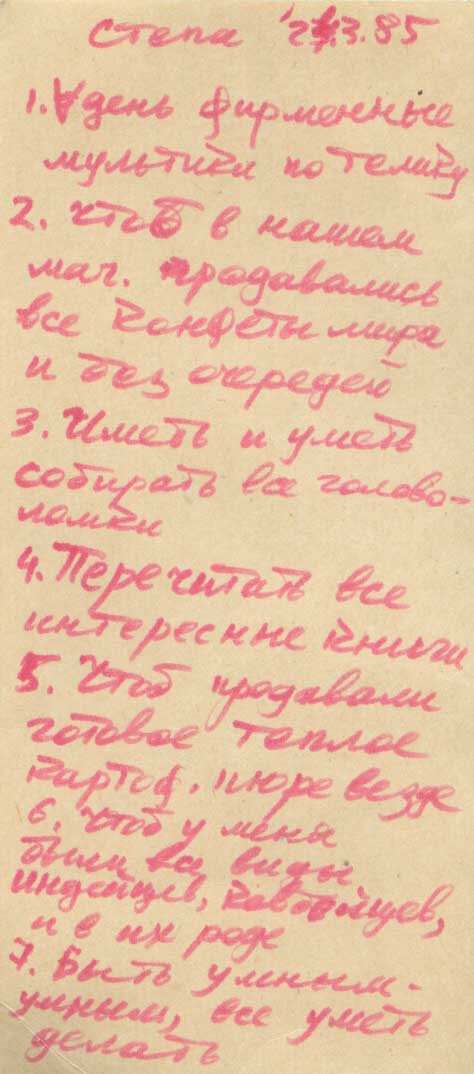 Степа 24.3.85
1. ∀ день фирменные
мультики по телику
2. Чтоб в нашем
маг. продавались
все конфеты мира
и без очередей
3. Иметь и уметь
собирать все голово-
ломки
4. Перечитать все
интересные книги
5. Чтоб продавали
готовое теплое
картоф. пюре везде
6. Чтоб у меня
были все виды
индейцев, ковбойцев,
и в их роде
7. Быть умным-
умным, все уметь
делать